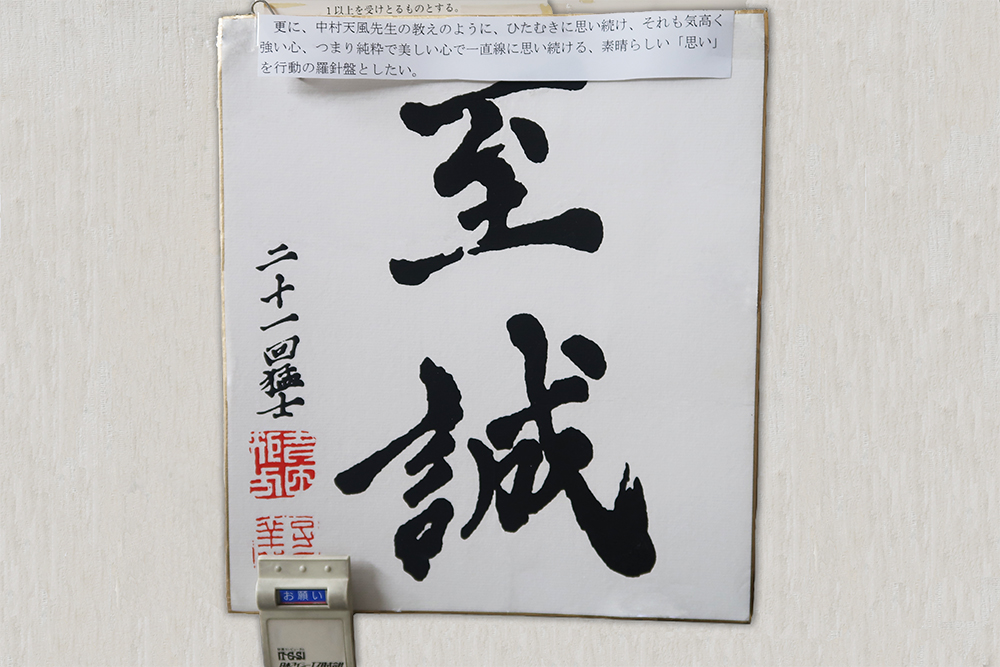 1以上を受けとるものとする。
更に、中村天風先生の教えのように、ひたむきに思い続け、それも気高く
強い心、つまり純粋で美しい心で一直線に思い続ける、素晴らしい「思い」
を行動の羅針盤としたい。
至誠
二十一回猛士
お願い